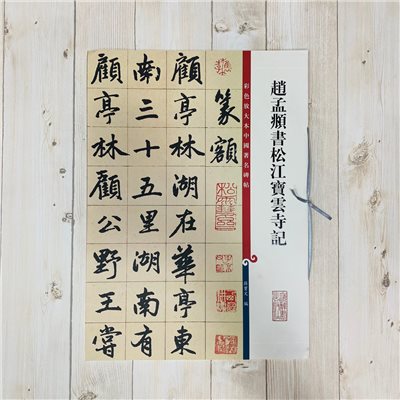 趙孟頫書松江寶雲寺記
彩色放大本中國著名碑帖
孫寶文 編
篆額
顧亭林湖在華亭東
南三十五里湖南有
顧亭林顧公野王嘗